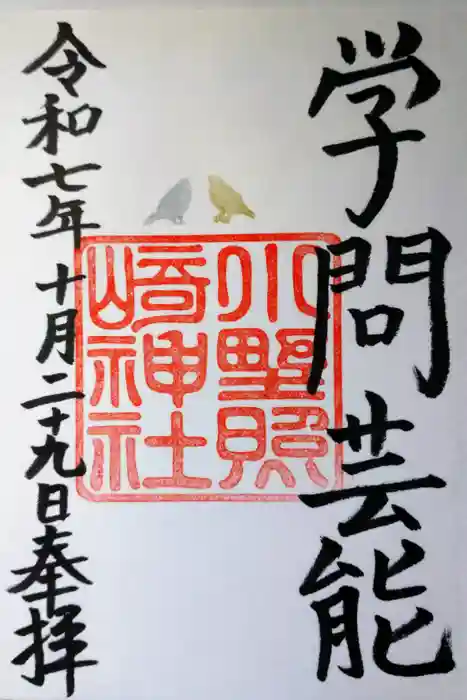 学問芸能
小野照
崎神社
令和七年十月二十九日奉拝